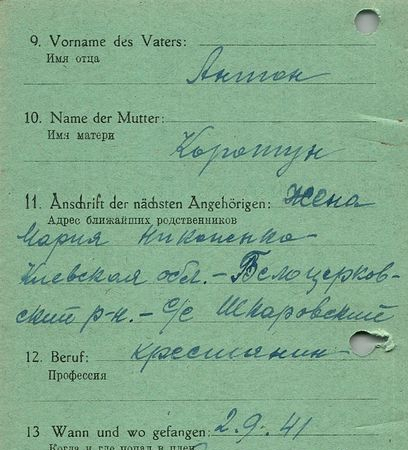 9. Vorname des Vaters:
Имя отца
Антон
10. Name der Mutter:
Имя матери
Коротун
11. Anschrift der nächsten Angehörigen: Жена
Адрес ближайших родственников
Мария Никоненко
Киевская обл. - Белоцерков-
ский р-н. - с/с Шкаровский
12. Beruf: крестьянин
Профессия
13 Wann und wo gefangen: 2.9.41
Когда и где попал в плен